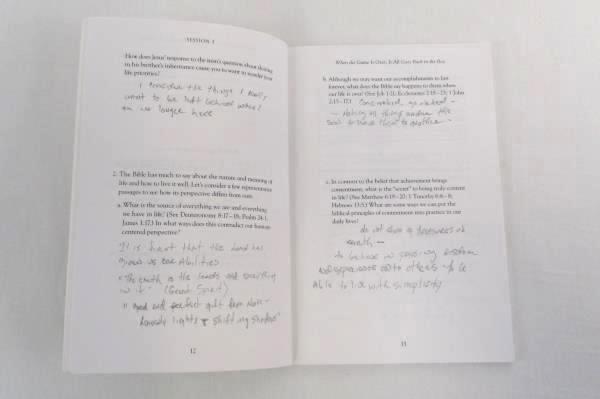 SESSION 1
How does Jesus' response to the man's question about sharing
in his brother's inheritance cause you to want to reorder your
life priorities?
I consider the things I
want to be left behind when I
am no longer here
2. The Bible has much to say about the nature and meaning of
life and how to live it well. Let's consider a few representative
passages to see how its perspective differs from ours.
a. What is the source of everything we are and everything
we have in life? (See Deuteronomy 8:17–18; Psalm 24:1;
James 1:17.) In what ways does this contradict our human-
centered perspective?
It is that the Lord has
given us our Abilities
"The earth is the Lords and everything
in it"
good and perfect gift from
lights shifting shadows"
12
When the Game Is Over, It All Goes Back in the Box
b. Although we may want our accomplishments to last
forever, what does the Bible say happens to them when
our life is over? (See Job 1:21; Ecclesiastes 2:18–23; 1 John
2:15–17.) Come naked go naked -
- things under the
Sun to leave them to another -
c. In contrast to the belief that achievement brings
contentment, what is the "secret" to being truly content
in life? (See Matthew 6:19–20; 1 Timothy 6:6–8;
Hebrews 13:5.) What are some ways we can put the
biblical principles of contentment into practice in our
daily lives?
do not store up treasures on
earth -
- to believe in passing wisdom
and experiences on to others - to be
Able to live with simplicity
13